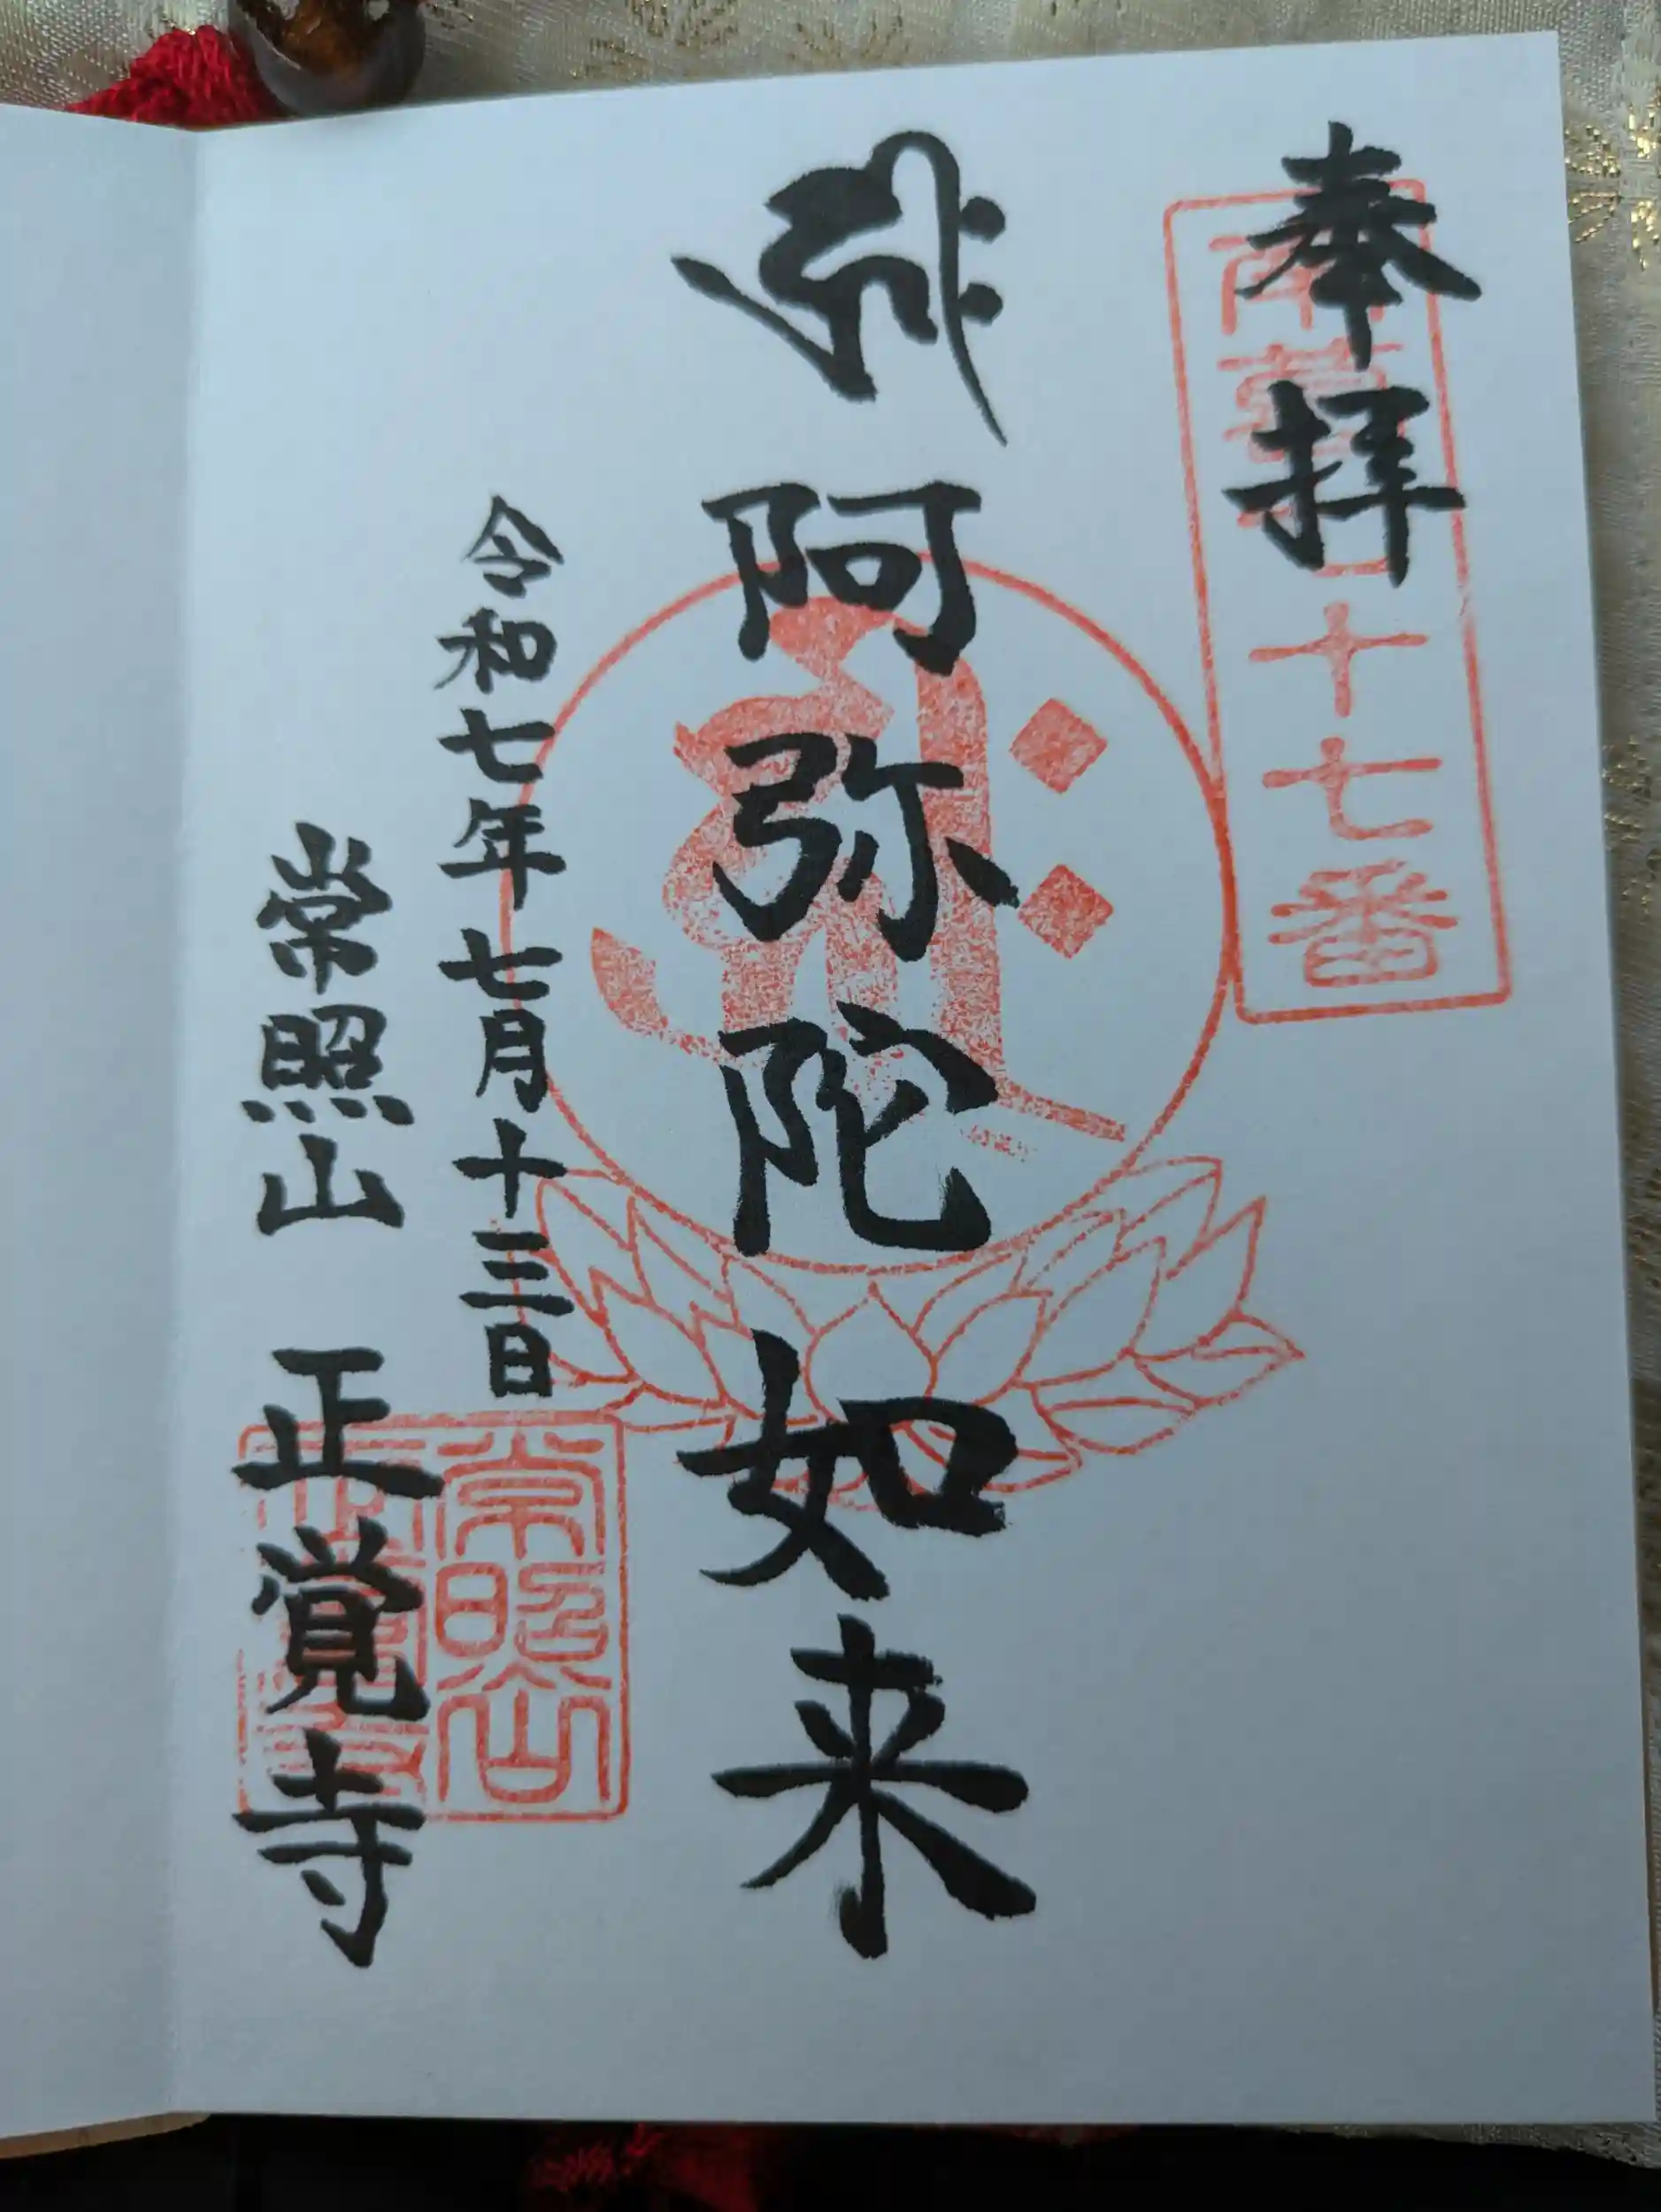 奉拝
十七番
𑖮𑖿𑖨𑖱𑖾 阿弥陀如来
令和七年七月十三日
常照山 正覚寺
常照山